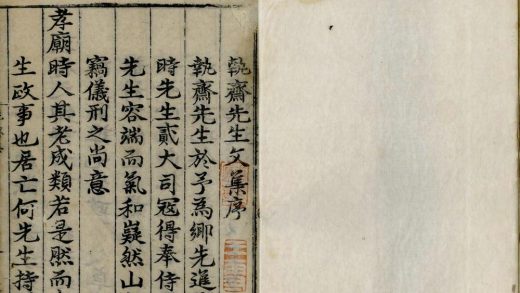 執齋先生文集序
執齋先生於予為鄉先進
時先生貳大司寇得奉侍
先生容端而氣和嶷然山
竊儀刑之尚意
孝廟時人其老成類若是然而
生政事也居亡何先生持